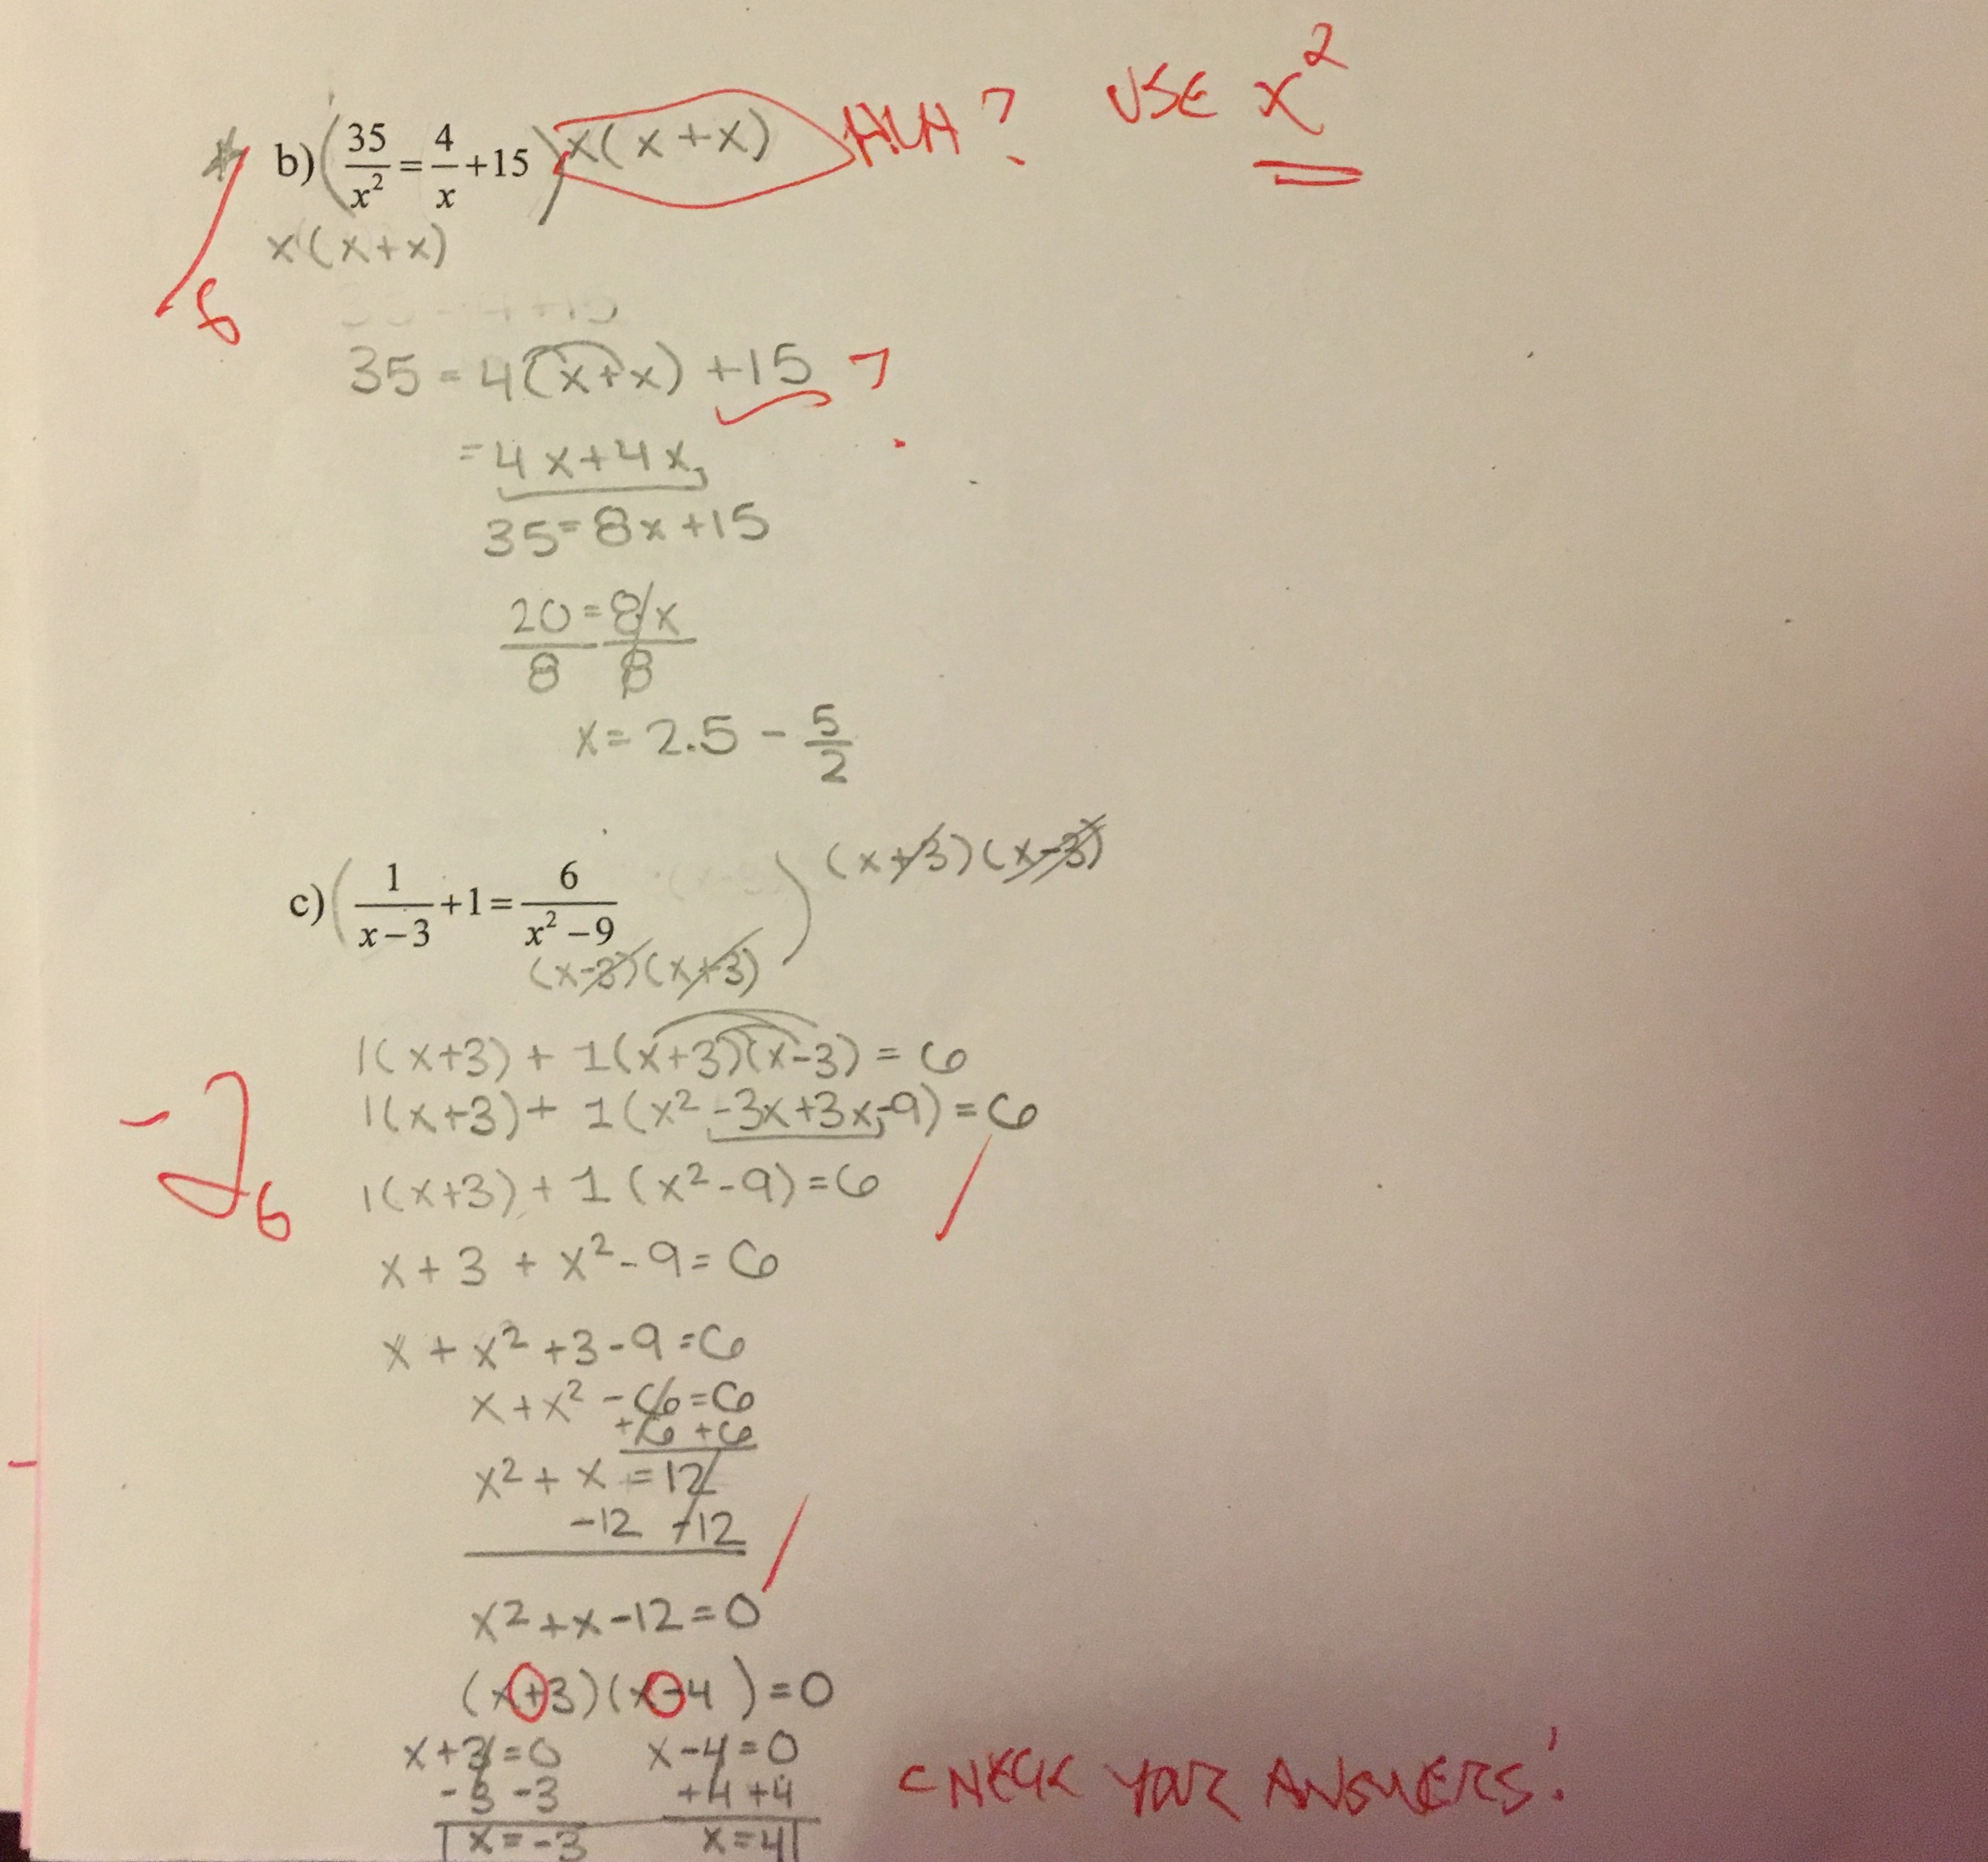 USE x²
b) (35/x² = 4/x +15) x(x+x) HUH?
x(x+x)
-8
35 = 4(x+x) +15 ?
= 4x+4x
35 = 8x+15
20/8 = 8x/8
x = 2.5 - 5/2
c) (1/(x-3) +1 = 6/(x²-9)) (x+3)(x-3)
(x-3)(x+3)
1(x+3) + 1(x+3)(x-3) = 6
1(x+3) + 1(x² -3x+3x-9) = 6
-2
6
1(x+3) + 1(x²-9) = 6
x+3 + x²-9 = 6
x + x² +3-9 = 6
x + x² -6 = 6
+6 +6
x² + x = 12
-12 -12
x² + x - 12 = 0
(x+3)(x-4) = 0
x+3=0 x-4=0
-3 -3 +4 +4
x=-3 x=4
CHECK YOUR ANSWERS!